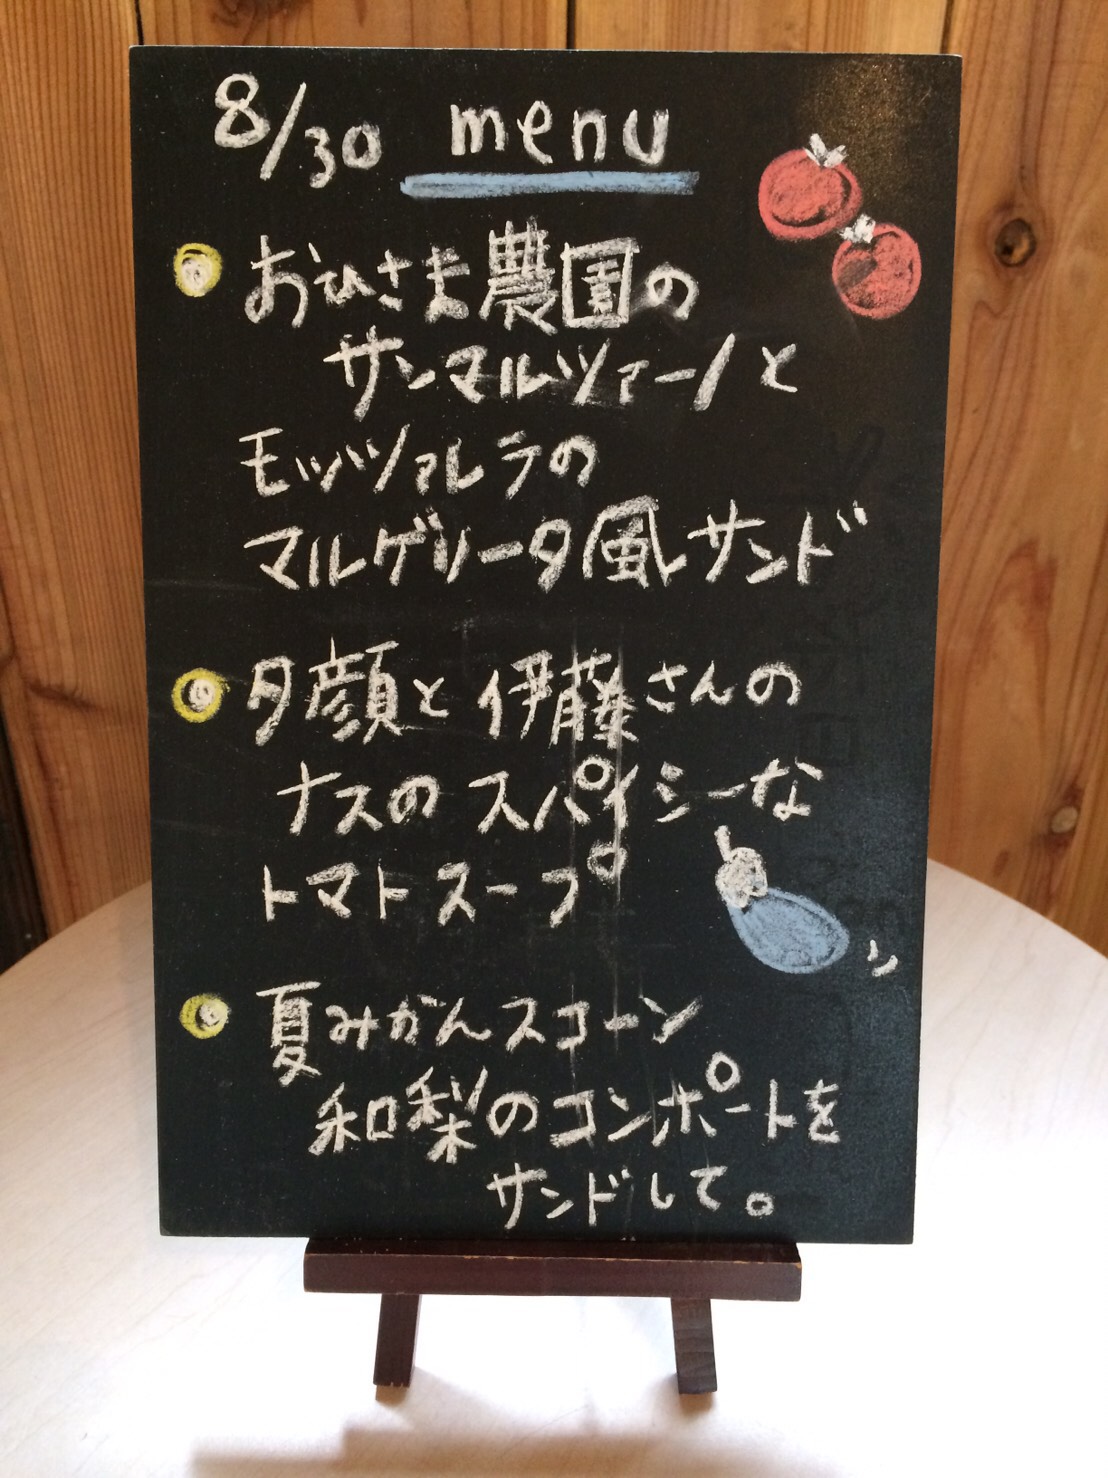 8/30 menu
おひさま農園の
サンマルツァーノと
モッツァレラの
マルゲリータ風サンド
夕顔と伊藤さんの
ナスのスパイシーな
トマトスープ
夏みかんスコーン
和梨のコンポートを
サンドして。